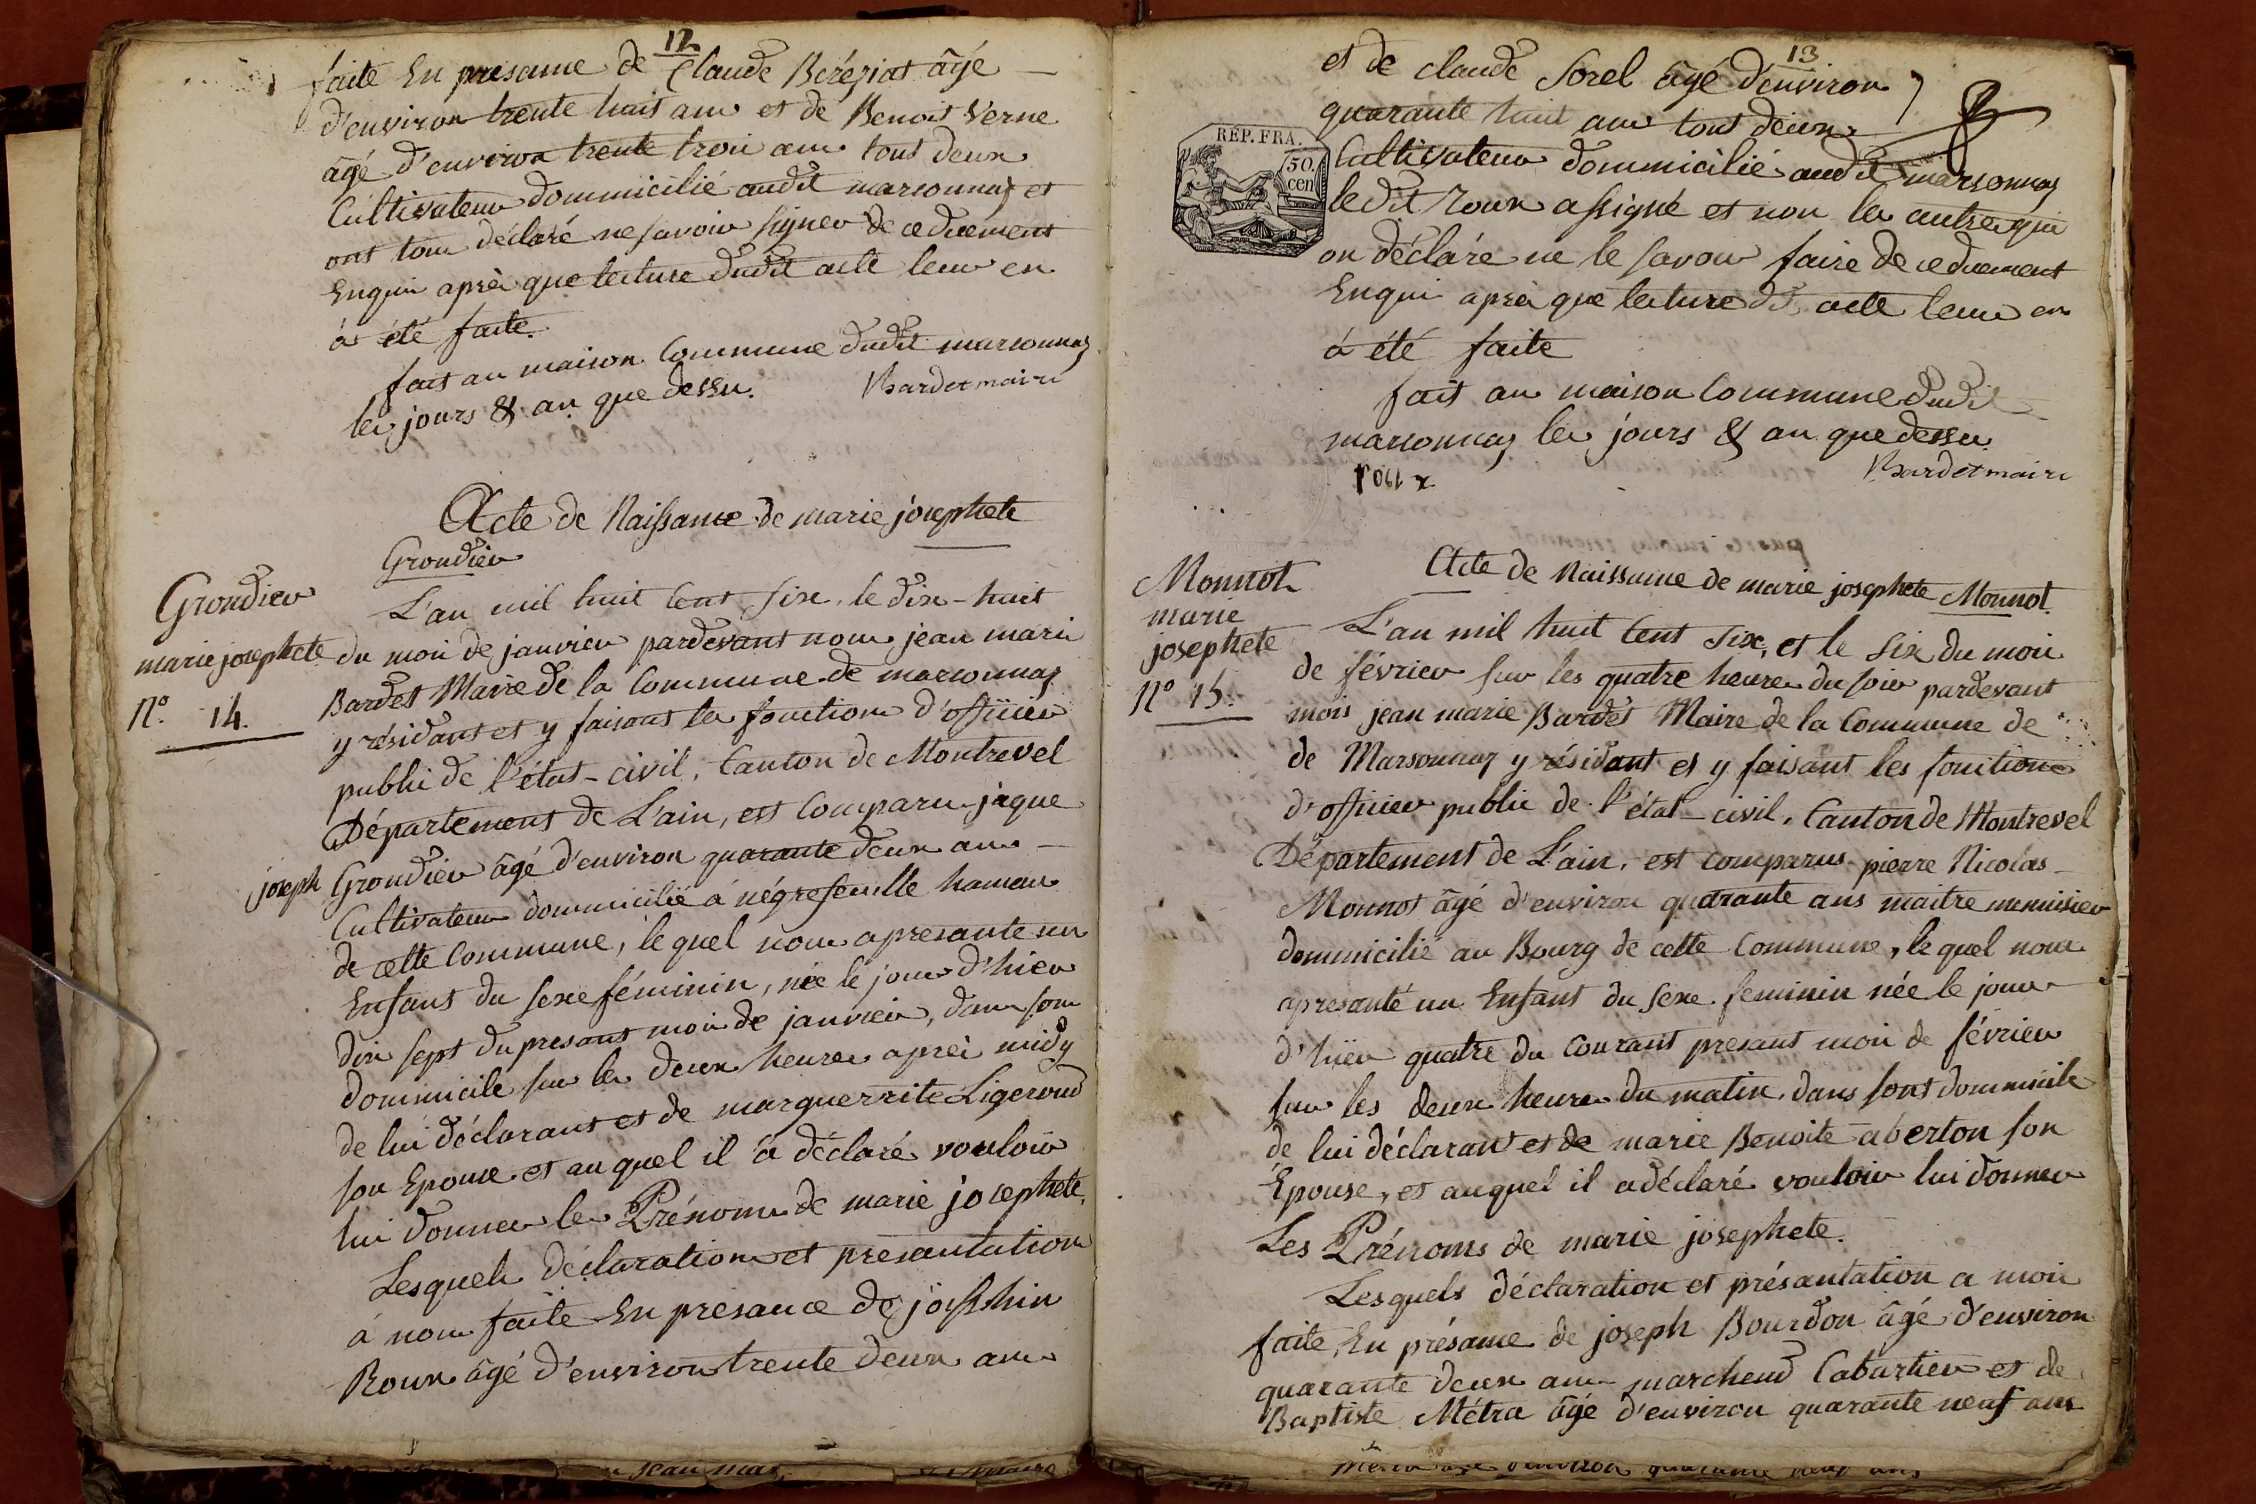 12
faite En presance de Claude Beréziat âgé
d'environ trente huit ans et de Benoit Verne
âgé d'environ trente trois ans tous deux
Cultivateur dommicilié audit marsonnas et
ont tous déclaré ne savoir signer de ce duement
Enquis après que lecture dudit acte leur en
à été faite.
fait au maison Commune dudit marsonnas
les jours & an que dessu.
Bardet maire
Acte de Naissance de marie josephete
Grondier
Grondier
marie josephete
N.º 14.
L'an mil huit Cent six, le dix-huit
du mois de janvier pardevant nous jean marie
Bardet Maire de la Commune de marsonnas
y résidant et y faisant les fonctions d'officier
public de l'état-civil, Canton de Montrevel
Département de L'ain, est Comparu jaque
joseph Grondier âgé d'environ quarante deux ans
Cultivateur dommicilié à négrefeuille hameau
de cette Commune, le quel nous apresante un
Enfant du sexe féminin, née le jour d'hier
dix sept du presant mois de janvier, dans son
dommicile sur les deux heures après midy
de lui déclarant et de marguerrite Ligeroud
son Epouse et au quel il à déclaré vouloir
lui donner les Prénoms de marie josephete.
Lesquels déclaration et presantation
à nous faite En presance de
Roux âgé d'environ trente deux ans
13
et de claude Sorel âgé d'environ
quarante huit ans tous deux
RÉP. FRA.
50.
cen
Cultivateur dommicilié audit marsonnas
le dit Roux a signé et non les autres qui
on déclaré ne le savoir faire de ce duement
Enquis après que lecture dt acte leur en
à été faite
fait au maison Commune dudit
marsonnas les jours & an que dessu
Bardet maire
Acte de Naissance de marie josephete Monnot.
Monnot
marie
josephete
Nº 15.
L'an mil huit Cent six, et le six du mois
de février sur les quatre heures du soir pardevant
mois jean marie Bardet Maire de la Commune de
de Marsonnas y résidant et y faisant les fonctions
d'officier public de l'état-civil, Canton de Montrevel
Département de L'ain, est comparus pierre Nicolas
Monnot âgé d'environ quarante ans maitre menuisier
dommicilié au Bourg de cette Commune, le quel nous
apresanté un Enfant du sexe feminin née le jour
d'hier quatre du Courant presant mois de février
sur les deux heures du matin, dans sont dommicile
de lui déclarant et de marie Benoite aberton son
Épouse, et auquel il a déclaré vouloir lui donner
Les Prénoms de marie josephete.
Lesquels déclaration et présantation a mois
faite, En présance de joseph Bourdon âgé d'environ
quarante deux ans marchend Cabartier et de
Baptiste Métra âgé d'environ quarante neuf ans